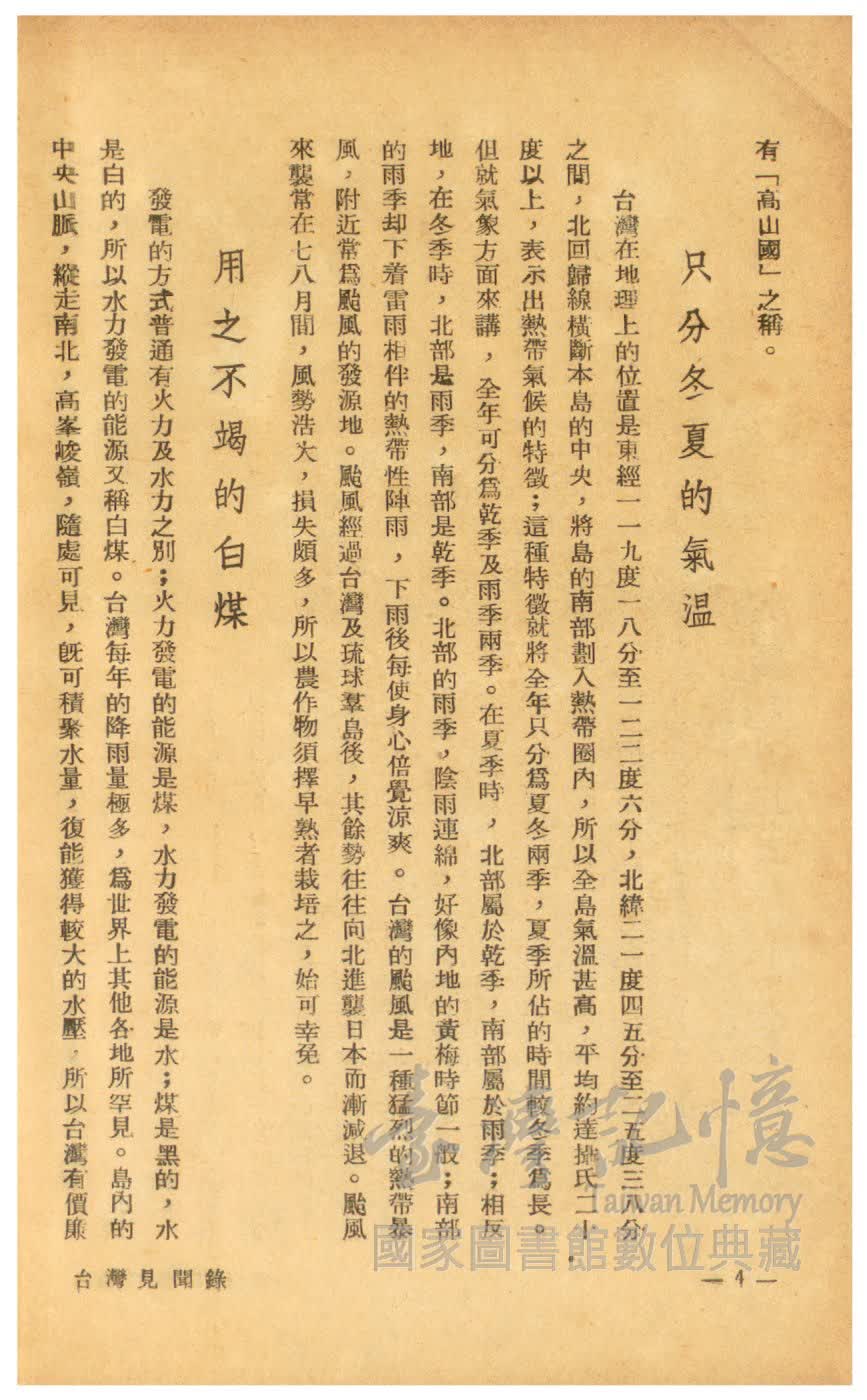 有「高山國」之稱。
只分冬夏的氣温
台灣在地理上的位置是東經一一九度一八分至一二二度六分，北緯二一度四五分至二五度三八分
之間，北回歸線橫斷本島的中央，將島的南部劃入熱帶圈內，所以全島氣溫甚高，平均約達攝氏二十
度以上，表示出熱帶氣候的特徵；這種特徵就將全年只分爲夏冬兩季，夏季所佔的時間較冬季爲長。
但就氣象方面來講，全年可分爲乾季及雨季兩季。在夏季時，北部屬於乾季，南部屬於雨季；相反
地，在冬季時，北部是雨季，南部是乾季。北部的雨季，陰雨連綿，好像內地的黃梅時節一般；南部
的雨季却下着雷雨相伴的熱帶性陣雨，下雨後每使身心倍覺涼爽。台灣的颱風是一種猛烈的熱帶暴
風，附近常爲颱風的發源地。颱風經過台灣及琉球羣島後，其餘勢往往向北進襲日本而漸減退。颱風
來襲常在七八月間，風勢浩大，損失頗多，所以農作物須擇早熟者栽培之，始可幸免。
用之不竭的白煤
發電的方式普通有火力及水力之別；火力發電的能源是煤，水力發電的能源是水；煤是黑的，水
是白的，所以水力發電的能源又稱白煤。台灣每年的降雨量極多，爲世界上其他各地所罕見。島內的
中央山脈，縱走南北，高峯峻嶺，隨處可見，旣可積聚水量，復能獲得較大的水壓，所以台灣有價廉
台灣見聞錄
— 4 —
臺灣記憶
Taiwan Memory
國家圖書館數位典藏